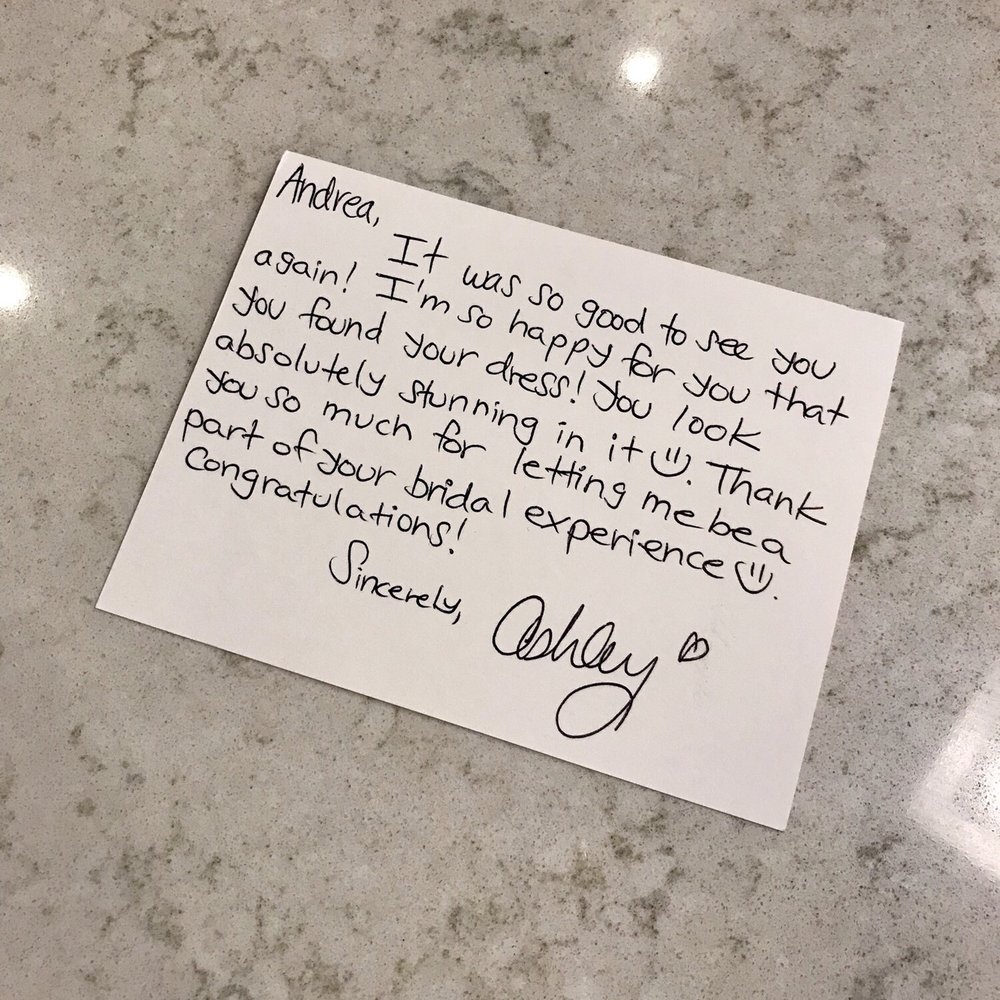 Andrea,
It was so good to see you
again! I'm so happy for you that
you found your dress! You look
absolutely stunning in it☺. Thank
you so much for letting me be a
part of your bridal experience☺.
Congratulations!
Sincerely,
Ashley ♡